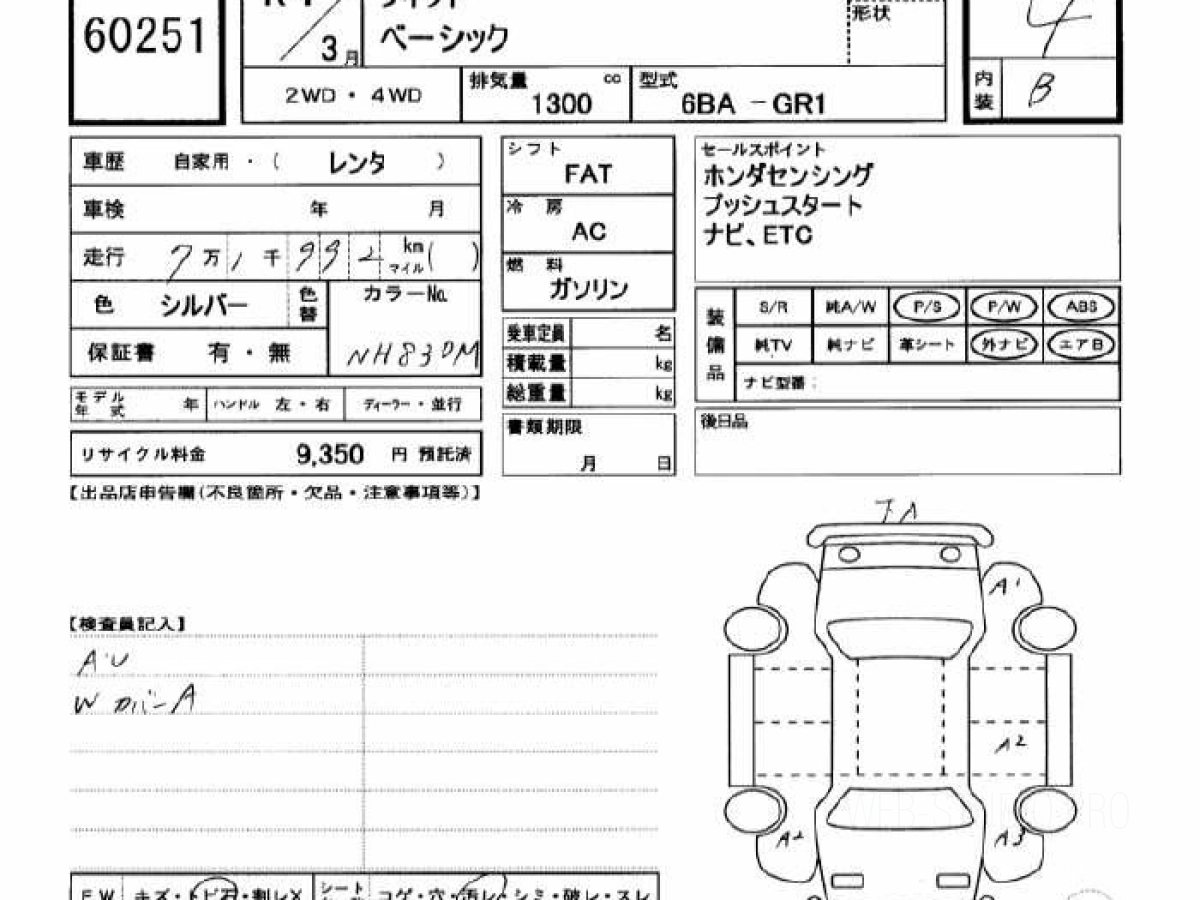 60251
3月
ベーシック
形状
4
2WD ・ 4WD
排気量 cc
1300
型式
6BA －GR1
内装 B
車歴 自家用 ・ ( レンタ )
車検 年 月
走行 7万1千992 km マイル ( )
色 シルバー 色替
カラーNo.
NH830M
保証書 有 ・ 無
モデル年式 年 ハンドル 左 ・ 右 ディーラー ・ 並行
リサイクル料金 9,350 円 預託済
シフト
FAT
冷房
AC
燃料
ガソリン
乗車定員 名
積載量 kg
総重量 kg
書類期限
月 日
セールスポイント
ホンダセンシング
プッシュスタート
ナビ、ETC
装備品
S/R 純A/W P/S P/W ABS
純TV 純ナビ 革シート 外ナビ エアB
ナビ型番：
後日品
【出品店申告欄(不良箇所・欠品・注意事項等)】
下A
【検査員記入】
A・U
W カバーA
A1
A2
A2
A3
F.W キズ・トビ石・割レX シート コゲ・穴・汚レ・シミ・破レ・スレ